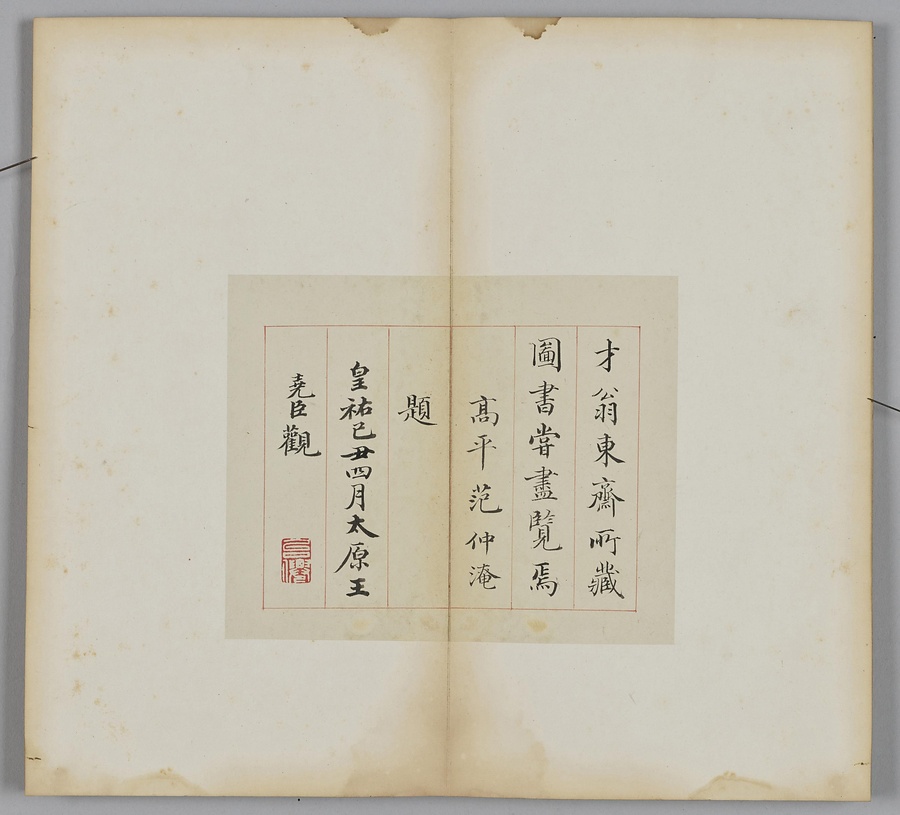 才翁東齋所藏
圖書嘗盡覽焉
高平范仲淹
題
皇祐已丑四月太原王
堯臣觀